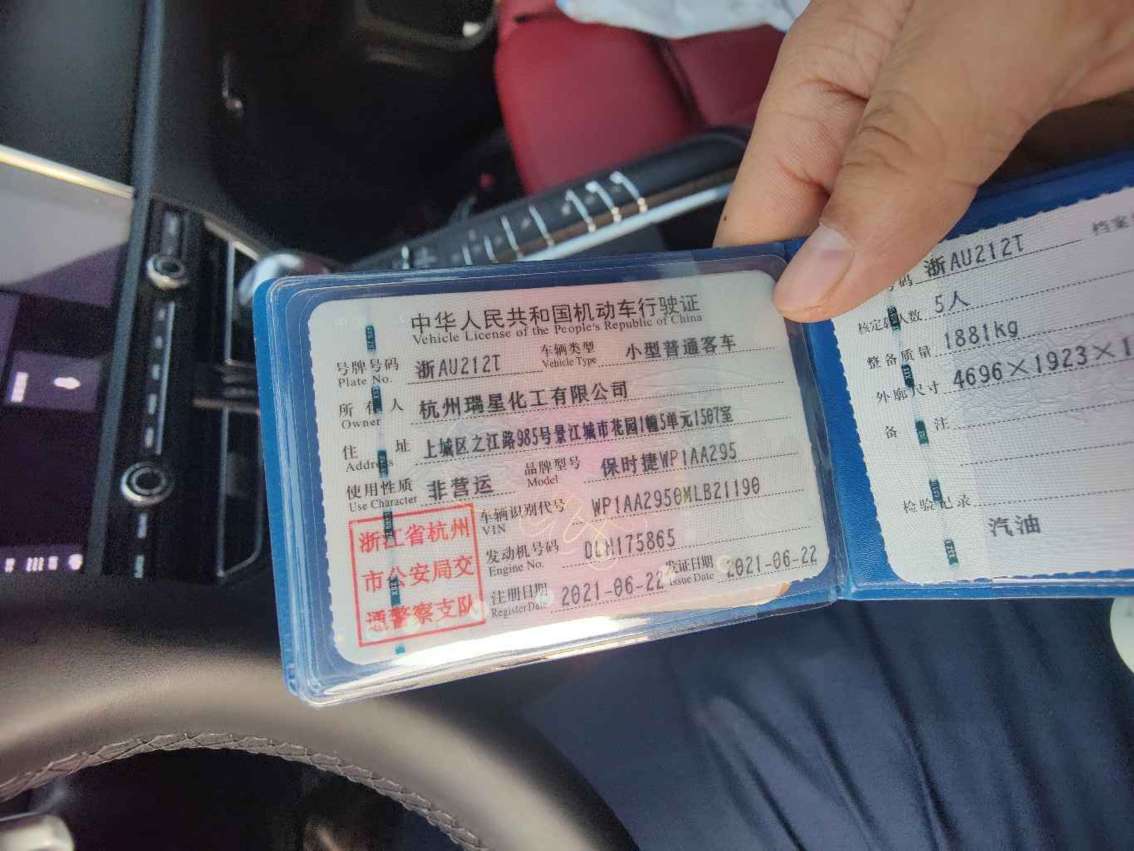 中华人民共和国机动车行驶证
Vehicle License of the People's Republic of China
号牌号码 浙AU212T 车辆类型 小型普通客车
Plate No. Vehicle Type
所有人 杭州瑞星化工有限公司
Owner
住址 上城区之江路985号景江城市花园1幢5单元1507室
Address
使用性质 非营运 品牌型号 保时捷WP1AA295
Use Character Model
车辆识别代号 WP1AA2950MLB21190
VIN
发动机号码 175865
Engine No.
注册日期 2021-06-22 发证日期 2021-06-22
Register Date Issue Date
浙江省杭州
市公安局交
通警察支队
号码 浙AU212T 档案
核定载人数 5人
整备质量 1881kg
外廓尺寸 4696×1923×1
备注
检验记录
汽油